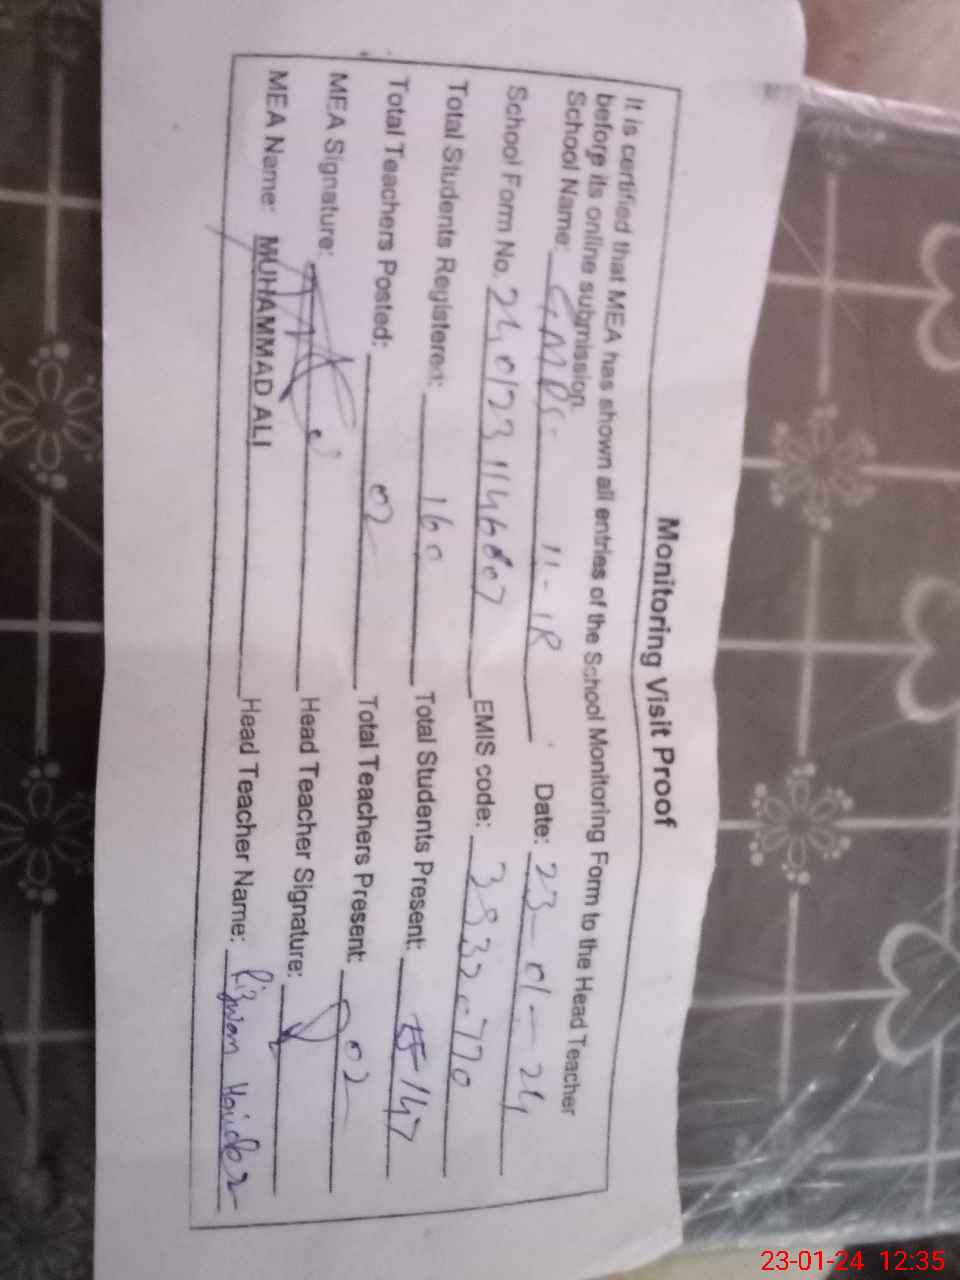 Monitoring Visit Proof
It is certified that MEA has shown all entries of the School Monitoring Form to the Head Teacher
before its online submission.
School Name: GMPS. 11-1R Date: 23-01-24
School Form No. 2401231146807 EMIS code: 38320770
Total Students Registered: 160 Total Students Present: 147
Total Teachers Posted: 02 Total Teachers Present: 02
MEA Signature: Head Teacher Signature:
MEA Name: MUHAMMAD ALI Head Teacher Name: Rizwan Haider
23-01-24 12:35